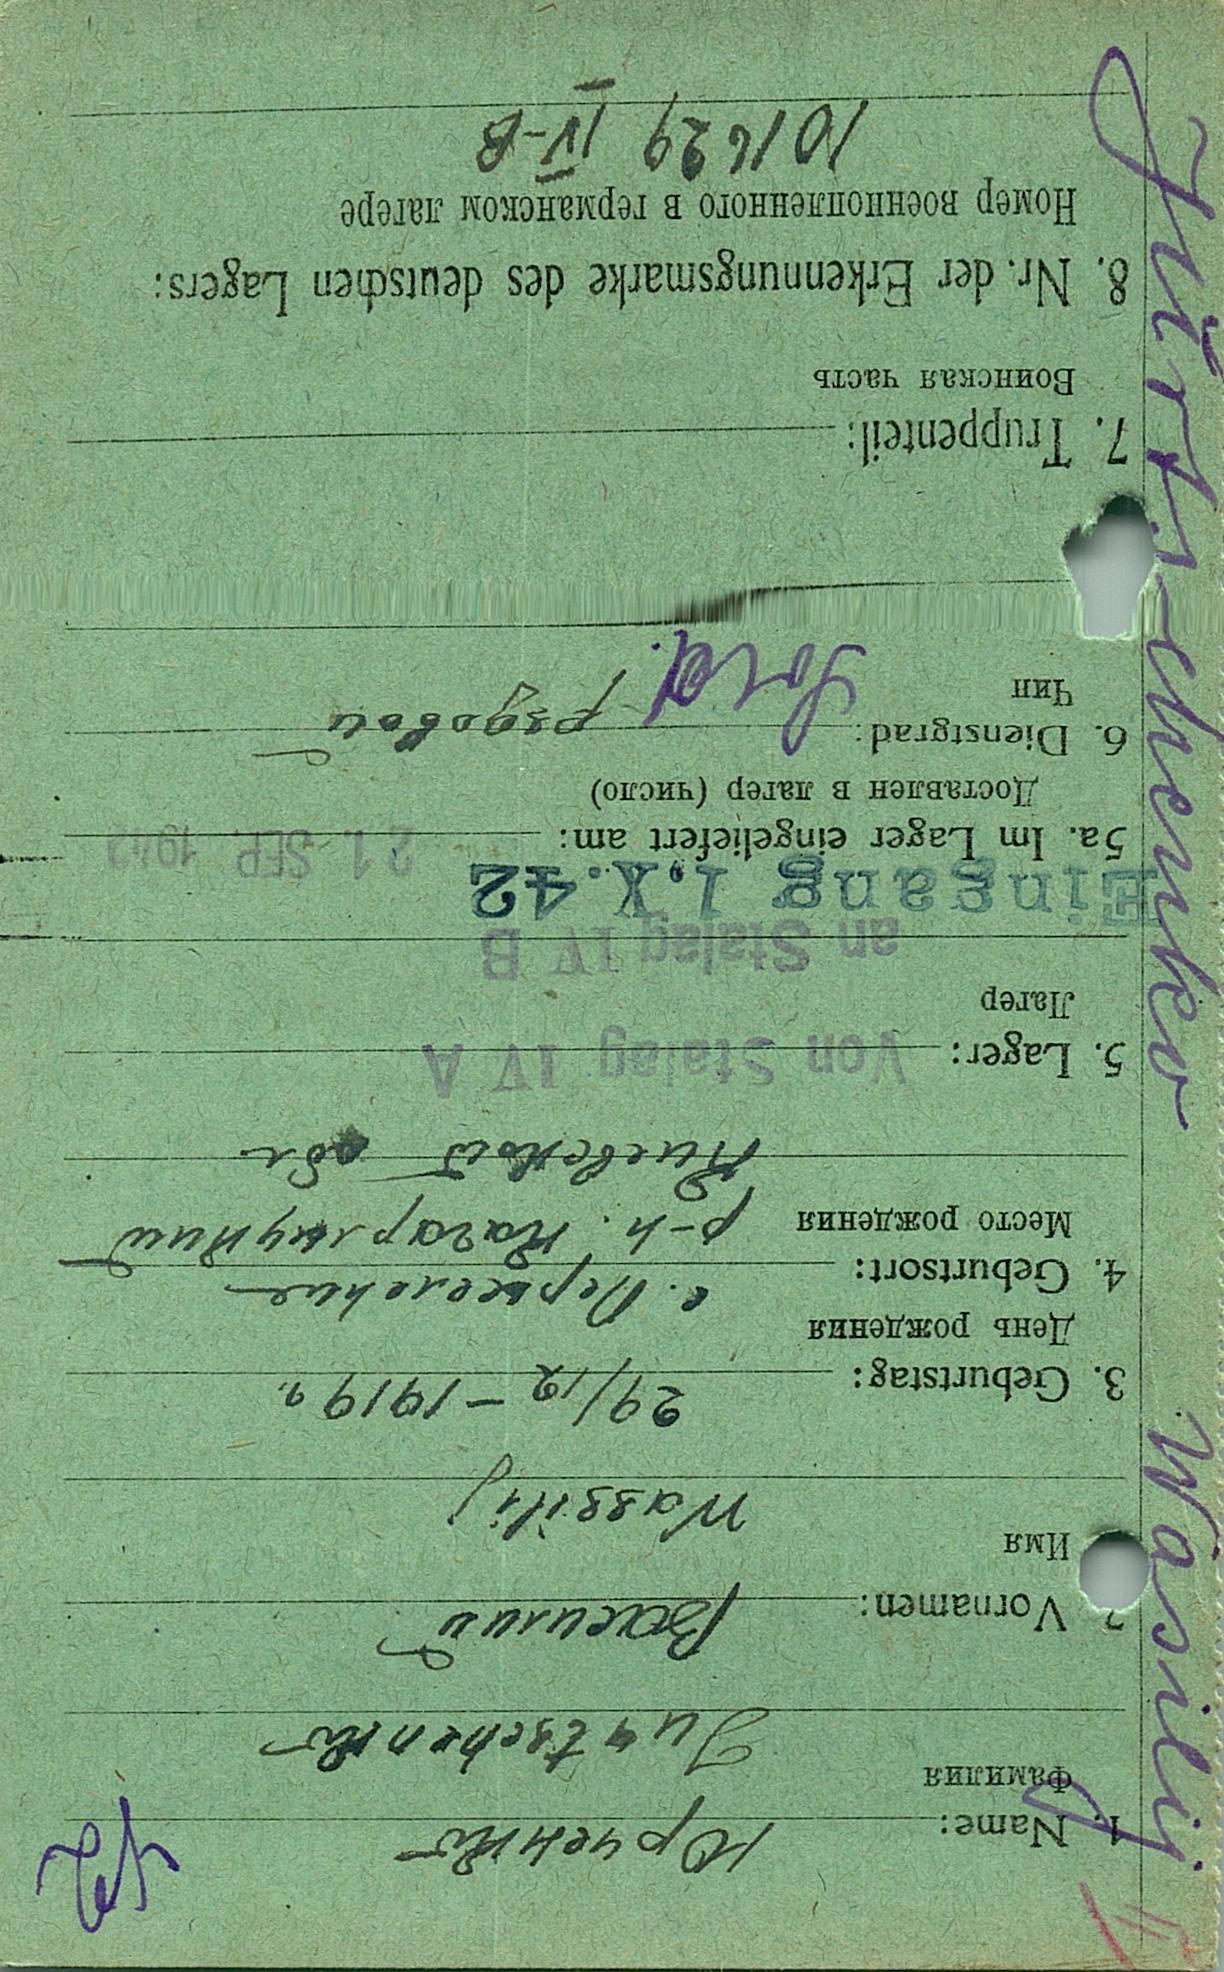 Jurtschenko Wasilij
1. Name: Юрченко
Фамилия
Jurtschenko
Vornamen: Василий
Имя
Wassilij
3. Geburtstag: 29/12 – 1919 г.
День рождения
4. Geburtsort: с.
Место рождения р-н. Кагарлыцкий
Киевской обл
5. Lager: Von Stalag IV A
Лагер
an Stalag IV B
Eingang 1.X.42
5a. Im Lager eingeliefert am: 21. SEP. 1942
Доставлен в лагер (число)
6. Dienstgrad: Sold. рядовой
Чин
7. Truppenteil:
Воинская часть
8. Nr. der Erkennungsmarke des deutschen Lagers:
Номер военнопленного в германском лагере
101629 IV-B